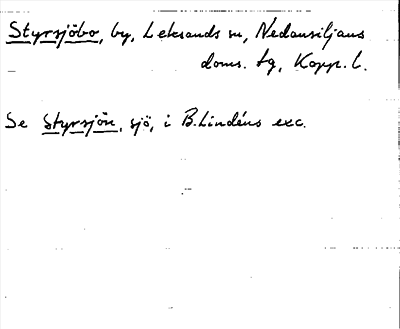 Styrsjöbo, by, Leksands sn, Nedansiljans
doms. tg, Kopp. l.
Se Styrsjön, sjö, i B. Lindéns exc.